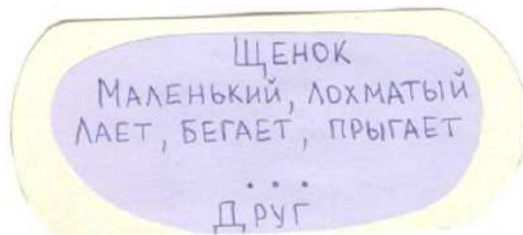 ЩЕНОК
МАЛЕНЬКИЙ, ЛОХМАТЫЙ
ЛАЕТ, БЕГАЕТ, ПРЫГАЕТ
...
ДРУГ